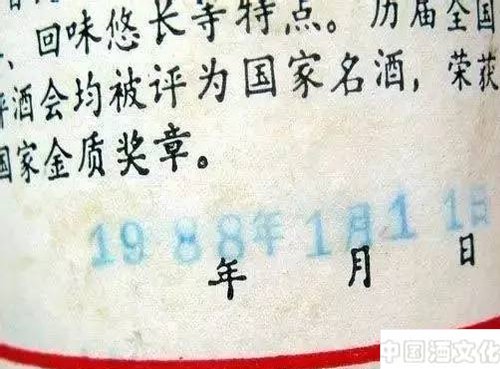 、回味悠长等特点。历届全国
评酒会均被评为国家名酒，荣获
国家金质奖章。
1988年1月11日
年 月 日
中国酒文化